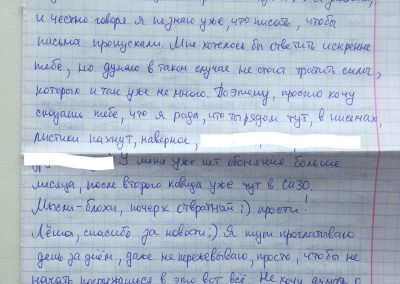 и честно говоря я не знаю уже, что писать, чтобы
письма пропускали. Мне хотелось бы ответить искренне
тебе, но думаю в таком случае не стоит тратить силы,
которых и так уже не много. Поэтому, просто хочу
сказать тебе, что я рада, что ты рядом тут, в письмах,
листики пахнут, наверное,
У меня уже нет обоняния больше
месяца, после второго ковида уже тут в СИЗО.
Мысли-блохи, почерк отвратный :) прости!
Лёша, спасибо за новости :) Я тут проглатываю
день за днём, даже не пережёвываю, просто, чтобы не
начать погружаться в это вот всё. Не хочу думать о